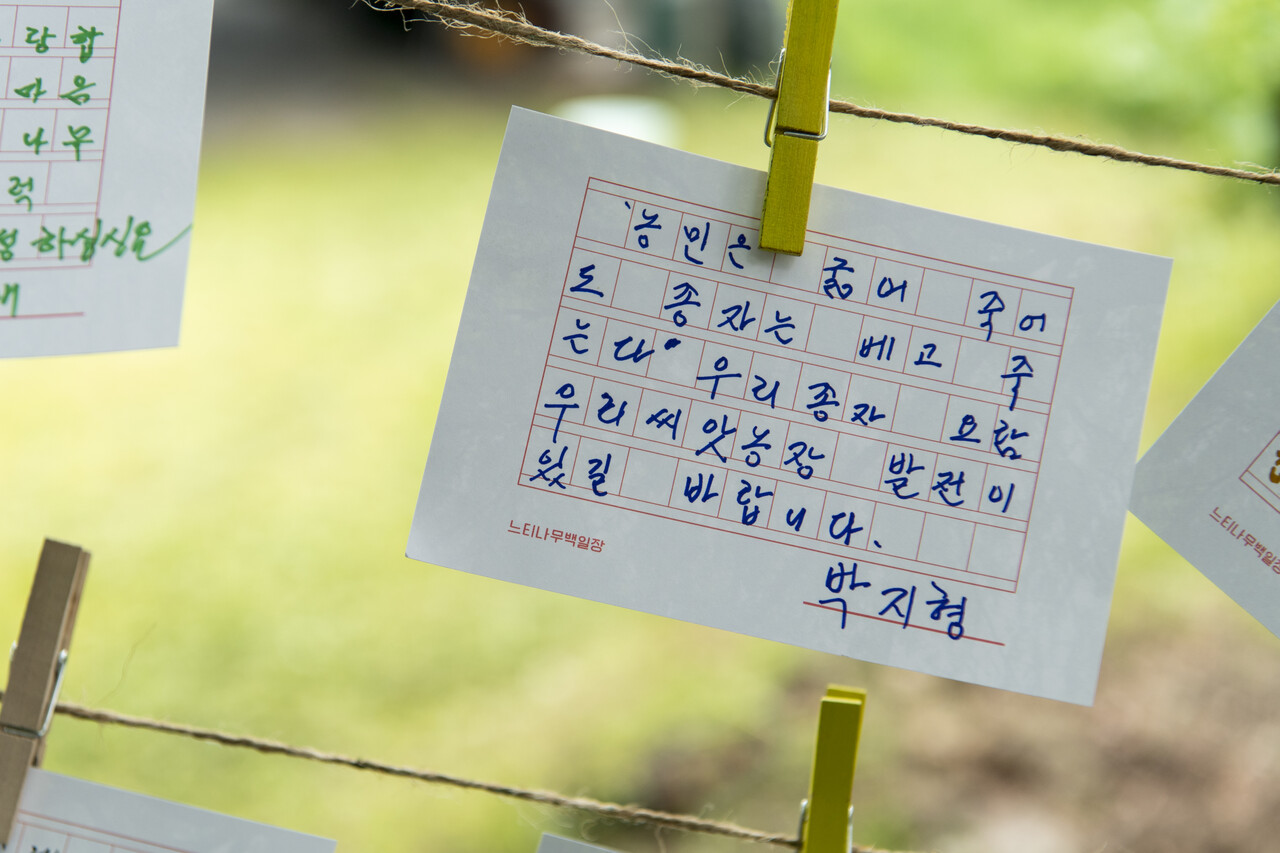 당합
마음
나무
럭
성 하십시요
농민은 굶어 죽어
도 종자는 베고 죽
는다" 우리 종자 요람
우리씨앗농장 발전이
있길 바랍니다.
느티나무백일장
박지형
느티나무백일장